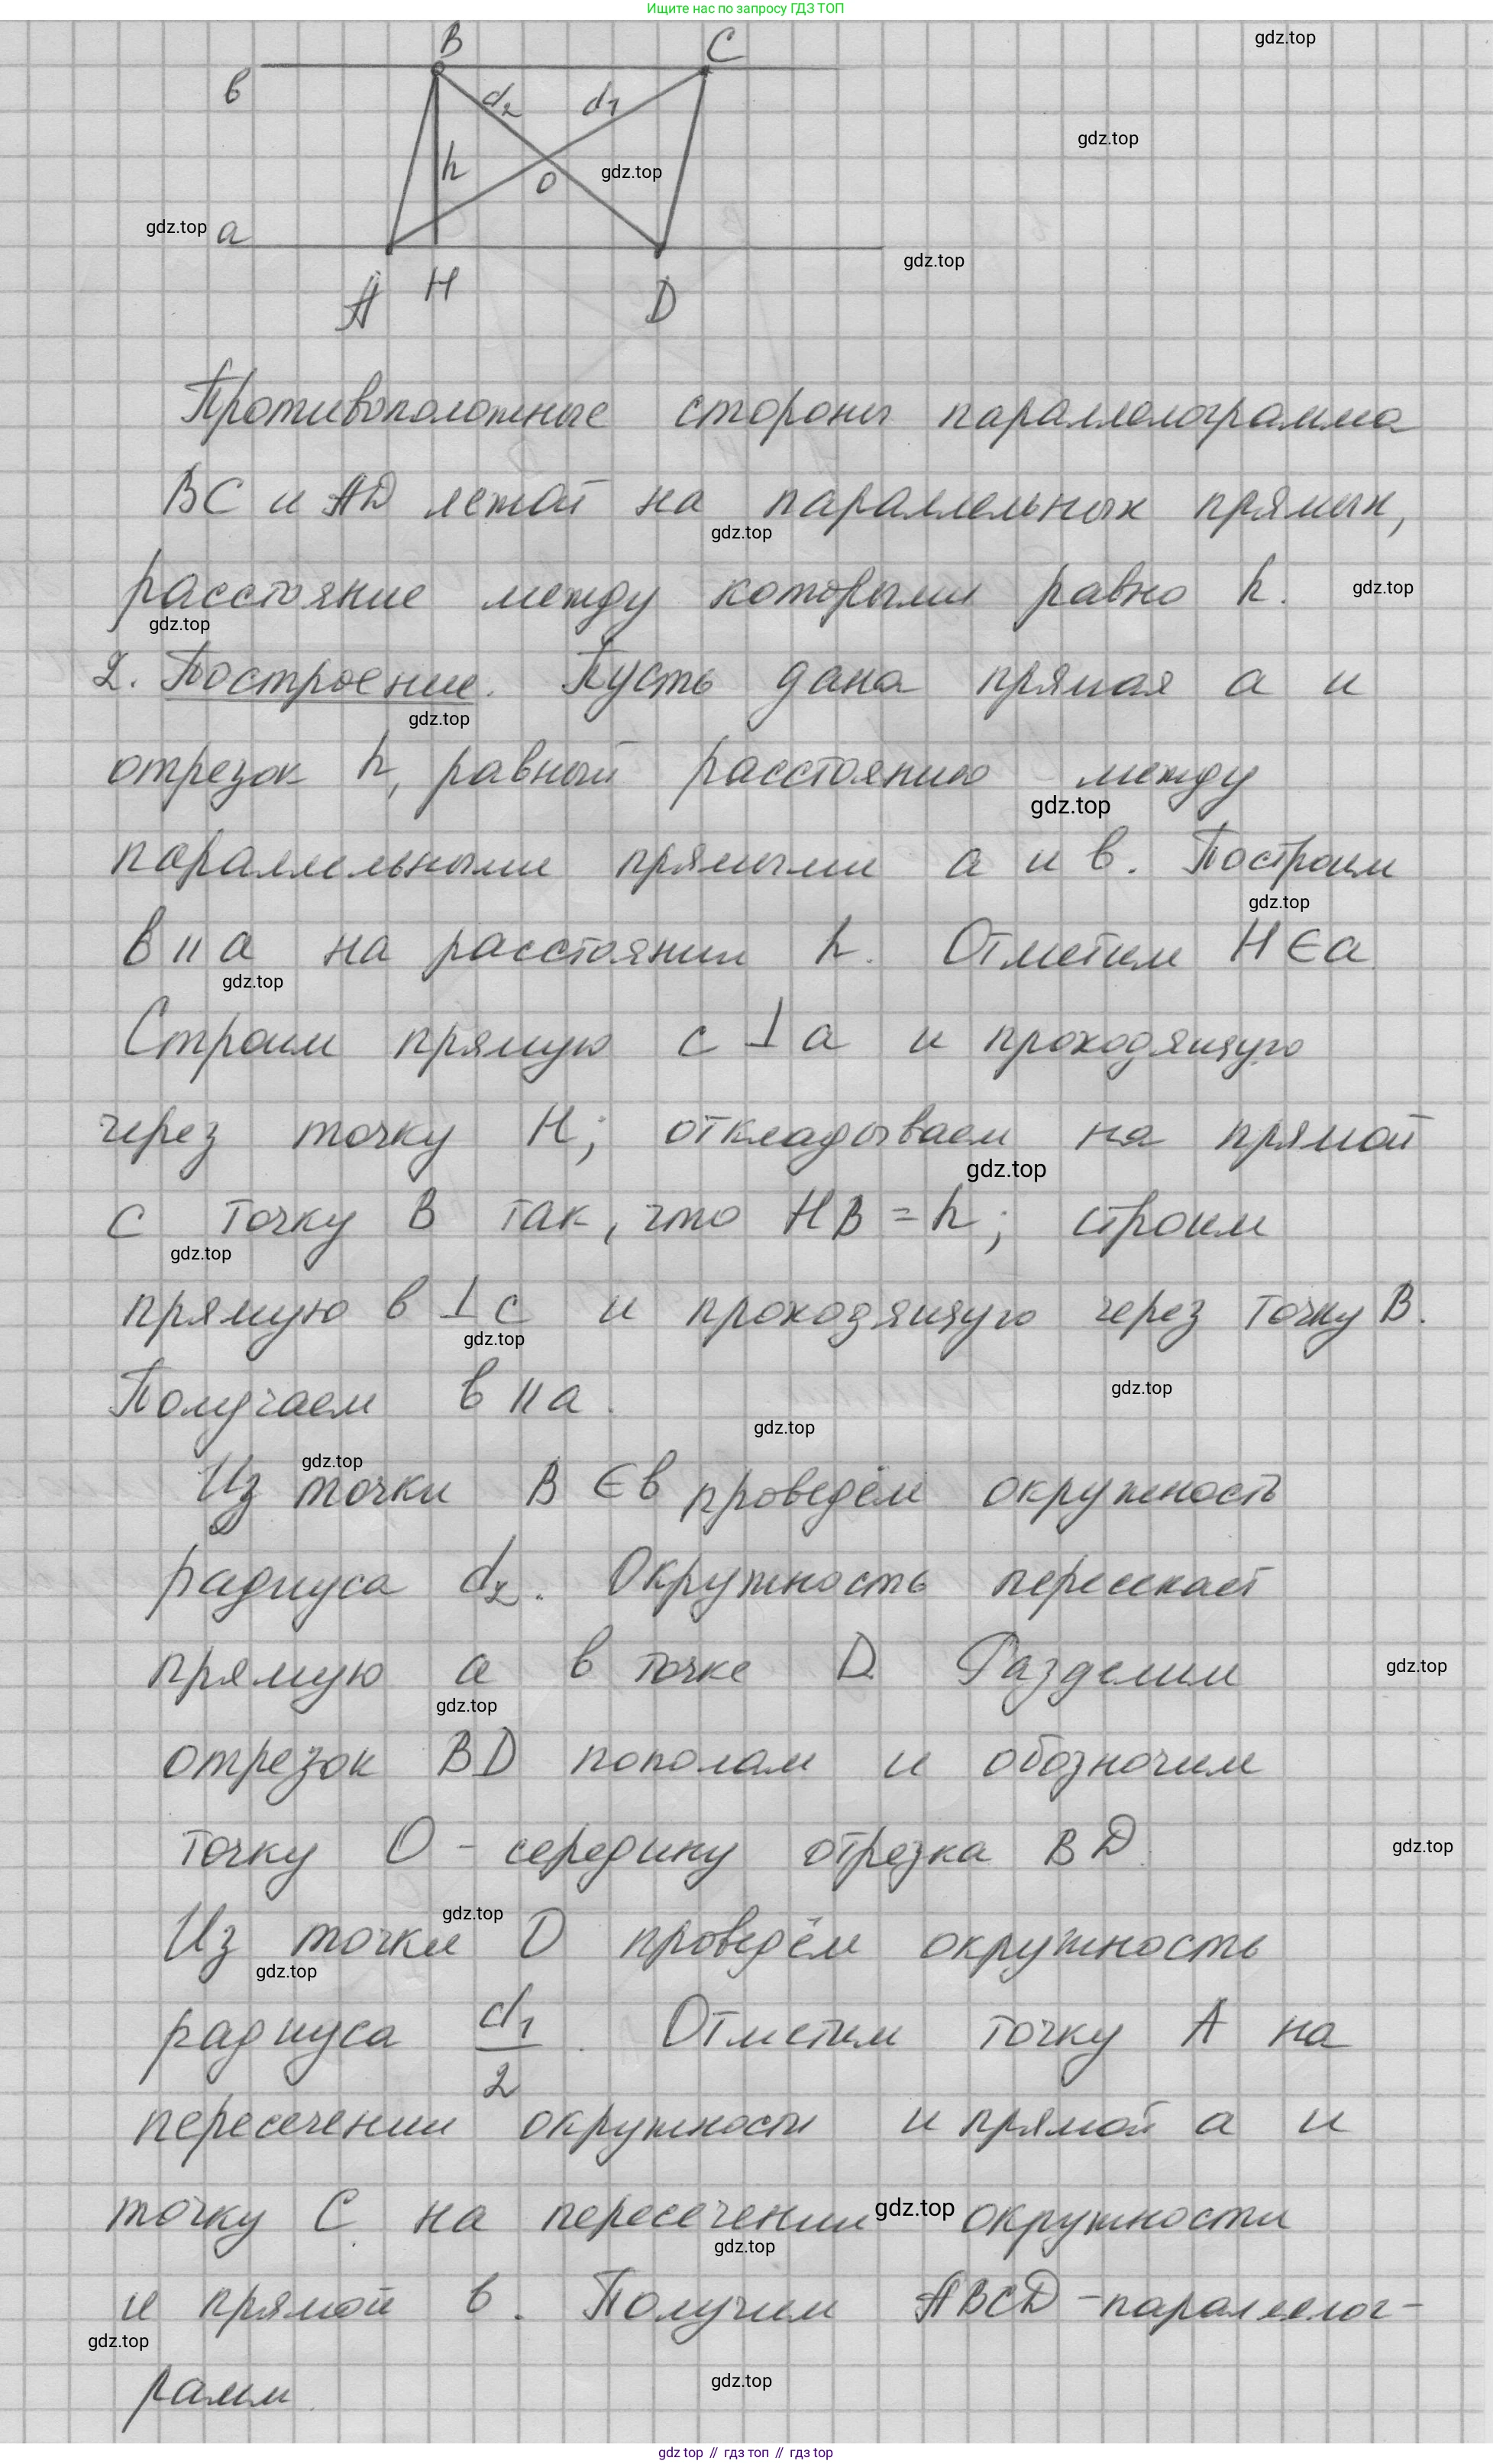 Ищите нас по запросу ГДЗ ТОП
B C
gdz.top
в
d₂ d₁
gdz.top
h
O
gdz.top
gdz.top a
gdz.top
A H D
Противоположные стороны параллелограмма
BC и AD лежат на параллельных прямых,
gdz.top
расстояние между которыми равно h.
gdz.top
gdz.top
2. Построение. Пусть дана прямая a и
gdz.top
отрезок h, равный расстоянию между
gdz.top
параллельными прямыми a и в. Построим
gdz.top
в || a на расстоянии h. Отметим H ∈ a
gdz.top
Строим прямую c ⊥ a и проходящую
через точку H; откладываем на прямой
gdz.top
c точку B так, что HB = h; строим
gdz.top
прямую в ⊥ c и проходящую через точку B.
gdz.top
Получаем в || a.
gdz.top
gdz.top
gdz.top
Из точки B ∈ в проведём окружность
радиуса d₂. Окружность пересекает
прямую a в точке D. Разделим
gdz.top
gdz.top
отрезок BD пополам и обозначим
точку O - середину отрезка BD.
gdz.top
gdz.top
Из точки D проведём окружность
gdz.top
радиуса d₁/2. Отметим точку A на
пересечении окружности и прямой a и
точку C на пересечении окружности
gdz.top
gdz.top
и прямой в. Получим ABCD - параллелог-
gdz.top
рамм.
gdz.top
gdz top // гдз топ // гдз top